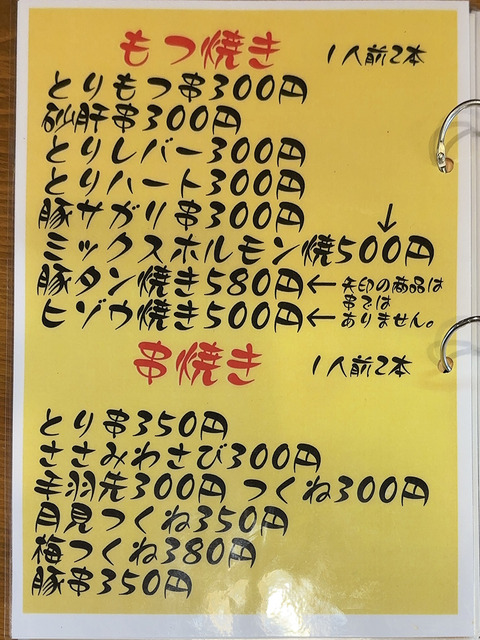 もつ焼き 1人前2本
とりもつ串300円
砂肝串300円
とりレバー300円
とりハート300円
豚サガリ串300円 ↓
ミックスホルモン焼500円
豚タン焼き580円← 矢印の商品は
串では
ヒゾウ焼き500円← ありません。
串焼き 1人前2本
とり串350円
ささみわさび300円
手羽先300円 つくね300円
月見つくね350円
梅つくね380円
豚串350円